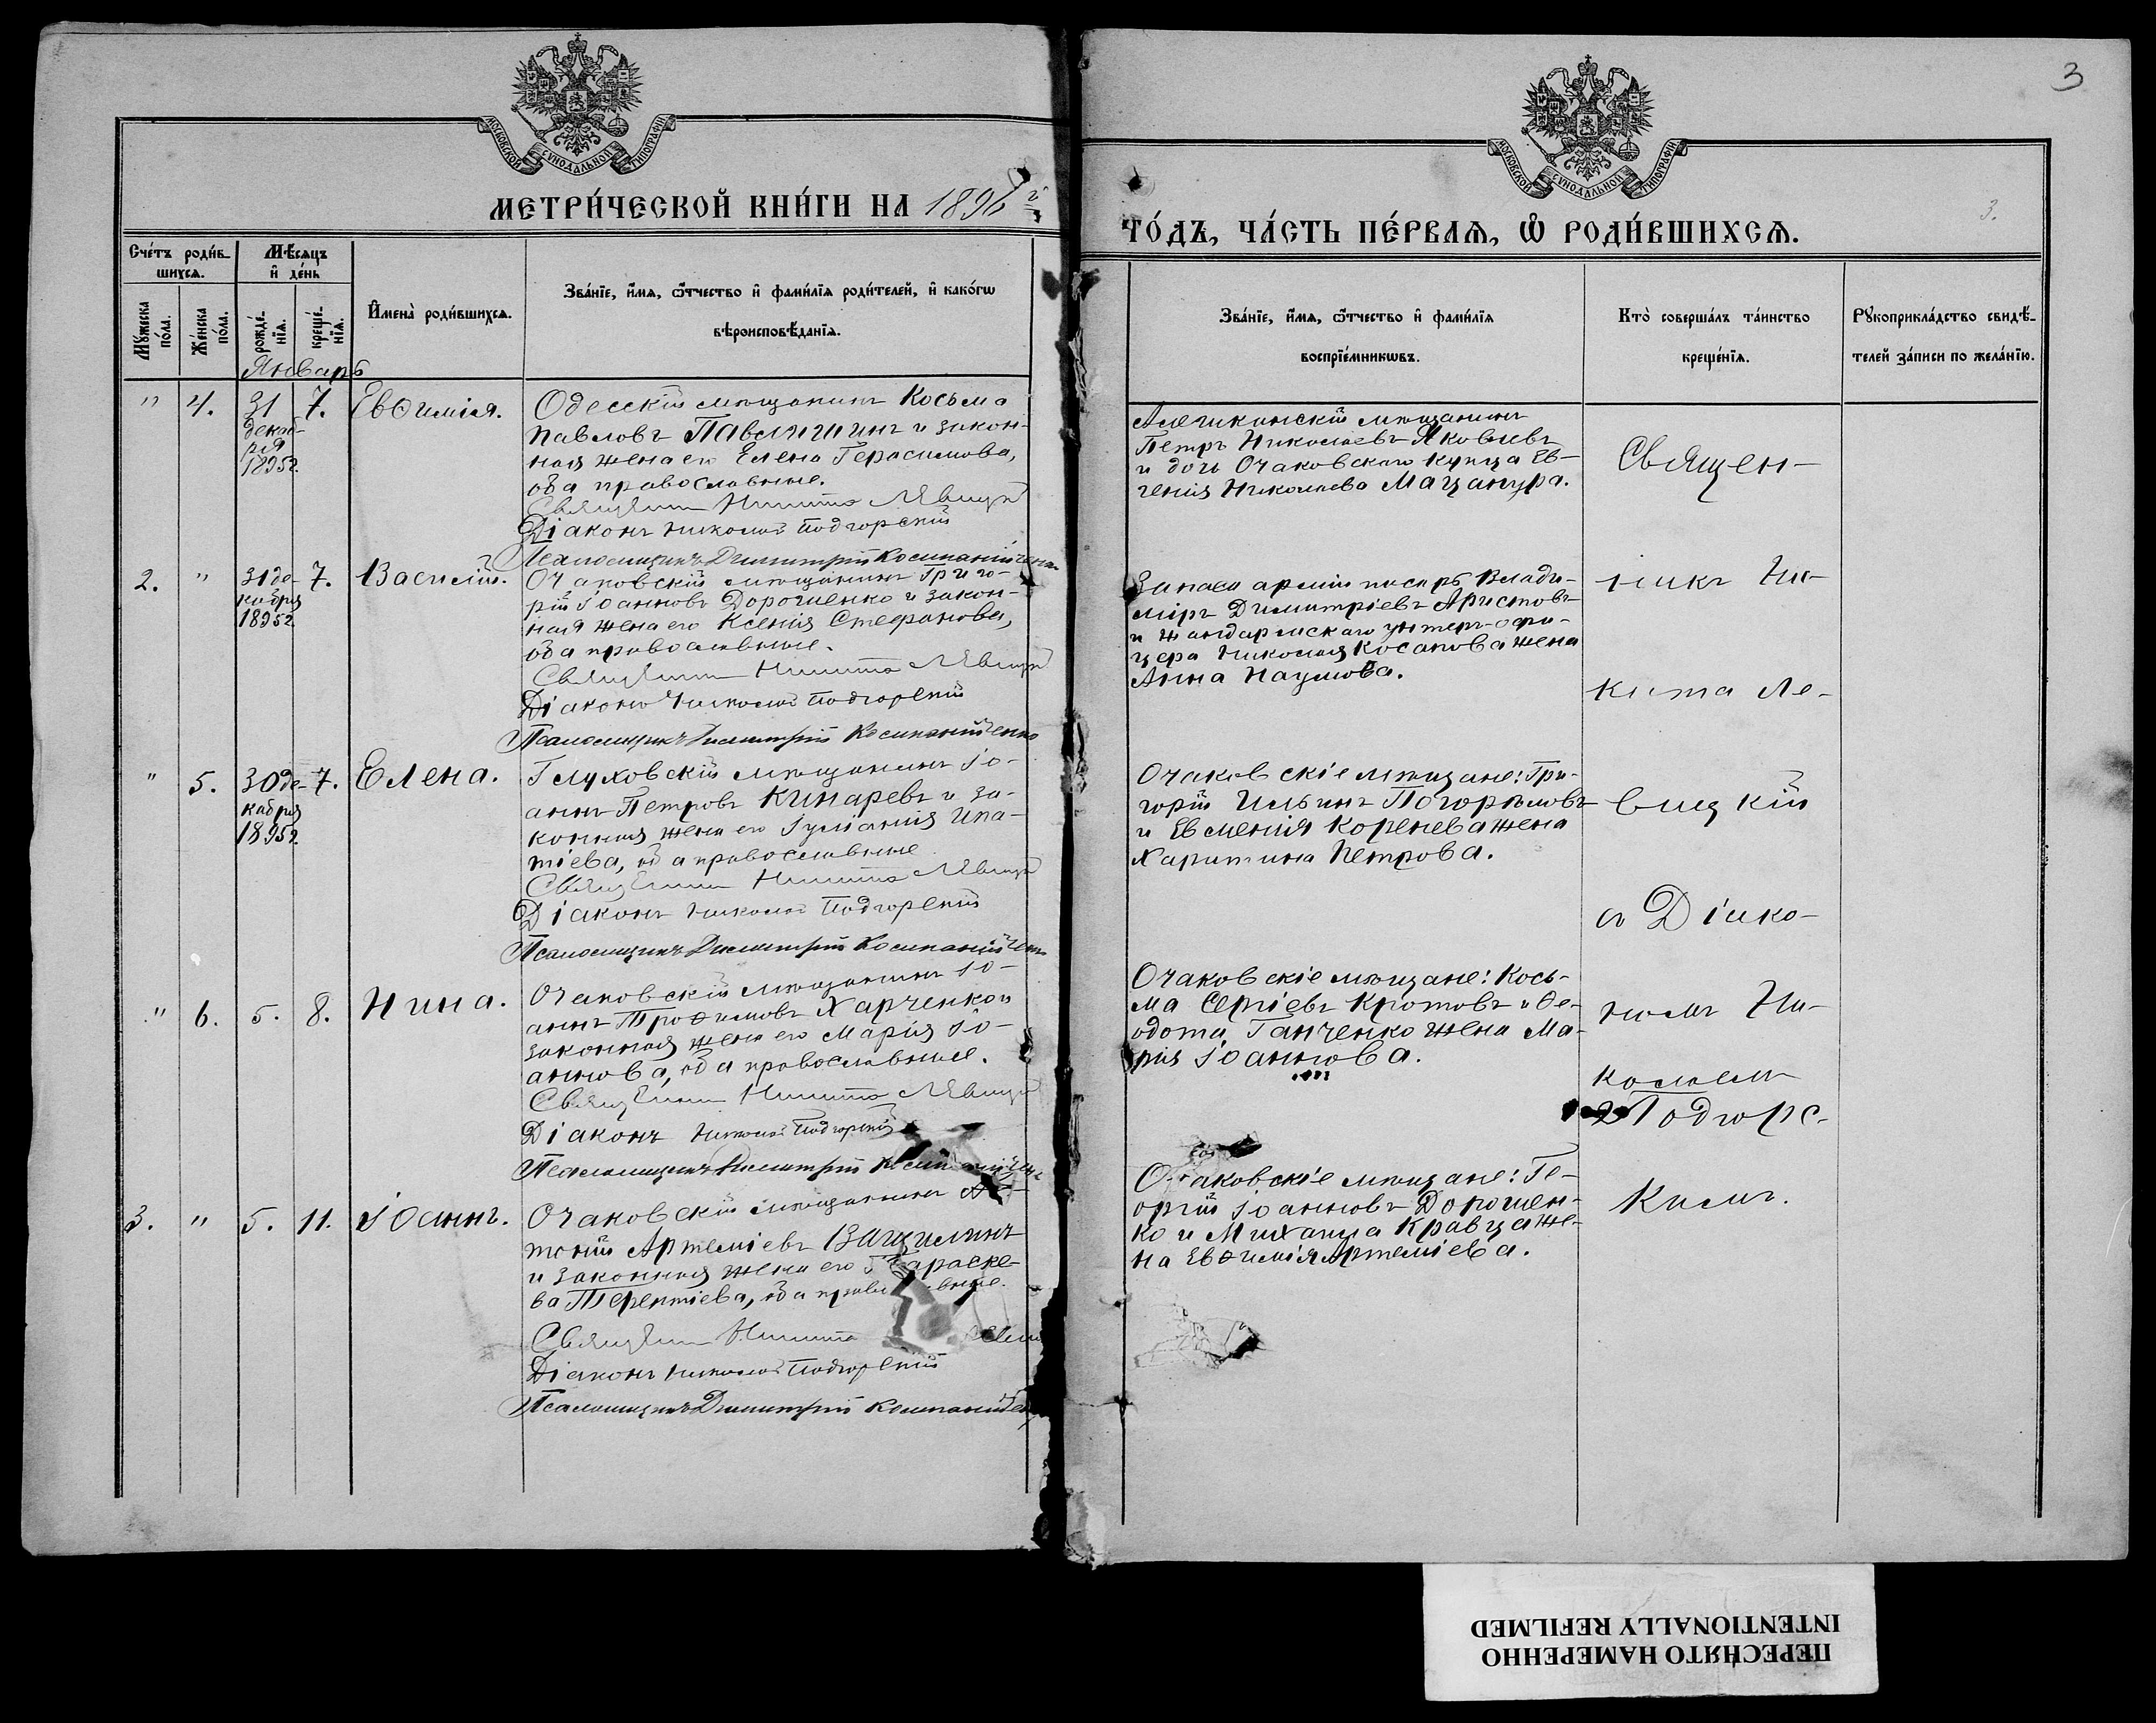 3
МОСКОВСКОЙ СѴНОДАЛЬНОЙ ТИПОГРАФІИ
МОСКОВСКОЙ СѴНОДАЛЬНОЙ ТИПОГРАФІИ
МЕТРИ́ЧЕСКОЙ КНИ́ГИ НА 1896 й
ГО́ДЪ, ЧА́СТЬ ПЕ́РВАЯ, Ѡ РОДИ́ВШИХСЯ.
3.
Сче́тъ роди́в-
шихся.
Мѣ́сяцъ
и де́нь
Мꙋжеска по́ла.
Же́нска по́ла.
рожде́нїя.
креще́нїя.
Имена̀ роди́вшихся.
Зва́нїе, и́мя, ѻ́тчество и фами́лїя роди́телей, и како́гѡ
вѣроисповѣ́данїя.
Зва́нїе, и́мя, ѻ́тчество и фами́лїя
воспрїе́мникѡвъ.
Кто̀ соверша́лъ та́инство
креще́нїя.
Рꙋкоприкла́дство свидѣ́-
телей за́писи по жела́нїю.
Январь
" 4. 31 декаб-
ря
1895г.
7. Евѳимія.
Одесскій мѣщанинъ Косьма
Павловъ Павлягинъ и закон-
ная жена его Елена Герасимова,
оба православные.
Священникъ Никита Левицкій
Діаконъ Николай Подгорскій
Псаломщикъ Димитрій Компанійченко
Петръ Николаевъ Яковлевъ
и дочь Очаковскаго купца Ев-
генія Николаева Мацанура.
2. " 31 де-
кабря
1895г.
7. Василій.
Очаковскій мѣщанинъ Григо-
рій Іоанновъ Дорошенко и закон-
ная жена его Ксенія Стефанова,
оба православные.
Священникъ Никита Левицкій
Діаконъ Николай Подгорскій
Псаломщикъ Димитрій Компанійченко
Запаса арміи писарь Влади-
міръ Димитріевъ Аристовъ
и жандармскаго унтеръ-офи-
цера Николая Косапова жена
Анна Наумова.
" 5. 30 де-
кабря
1895г.
7. Елена.
Глуховскій мѣщанинъ Іо-
аннъ Петровъ Кинаревъ и за-
конная жена его Іуліанія Ипа-
тіева, оба православные
Священникъ Никита Левицкій
Діаконъ Николай Подгорскій
Псаломщикъ Димитрій Компанійченко
Очаковскіе мѣщане: Гри-
горій Ильинъ Погорѣловъ
и Евменія Коренева жена
Харитина Петрова.
" 6. 5. 8. Нина.
Очаковскій мѣщанинъ Іо-
аннъ Трофимовъ Харченко и
законная жена его Марія Іо-
аннова, оба православные.
Священникъ Никита Левицкій
Діаконъ Николай Подгорскій
Псаломщикъ Димитрій Компанійченко
Очаковскіе мѣщане: Кось-
ма Сергіевъ Кротовъ и Ѳе-
одота Ганченко жена Ма-
рія Іоаннова.
3. " 5. 11. Іоаннъ.
Очаковскій мѣщанинъ Ан-
тоній Артеміевъ Ващилинъ
и законная жена его Параске-
ва Терентіева, оба православные.
Священникъ Никита Левицкій
Діаконъ Николай Подгорскій
Псаломщикъ Димитрій Компанійченко
Очаковскіе мѣщане: Ге-
оргій Іоанновъ Дорошен-
ко и Михаила Кравца же-
на Евѳимія Артеміева.
Священ-
никъ Ни-
кита Ле-
вицкій
съ Діако-
номъ Ни-
колаемъ
Подгорс-
кимъ.
ПЕРЕСНЯТО НАМЕРЕННО
INTENTIONALLY REFILMED